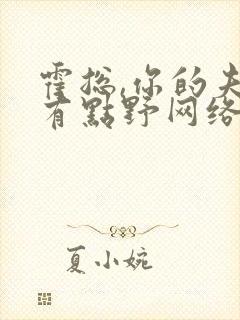 霍总,你的夫
有點野网络
夏小婉